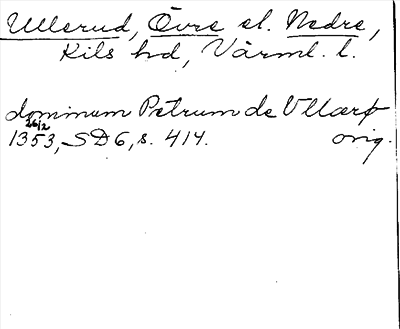 Ullerud, Övre el. Nedre,
Kils hd, Värml. l.
dominum Petrum de Vllærø
26/2
1353, SD 6, s. 414. orig.